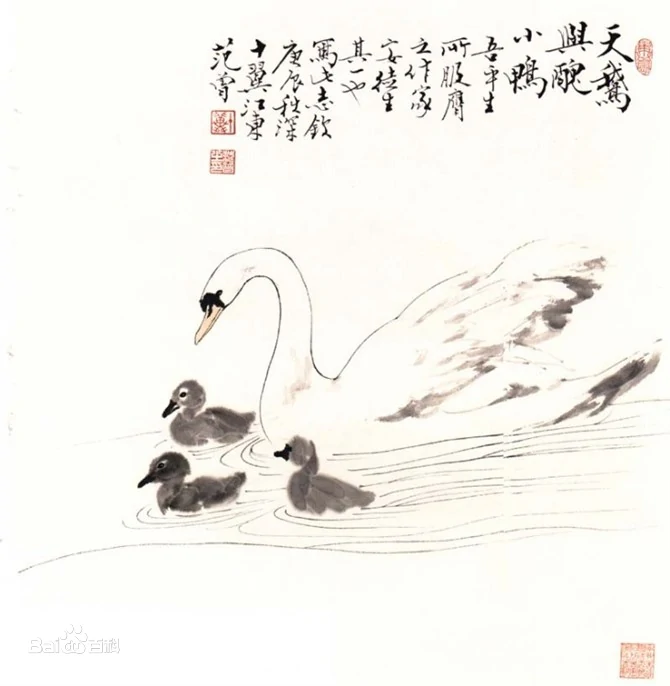 天鵝
與醜
小鴨
吾平生
所服膺
之作家
安徒生
其一也
寫此志欽
庚辰秋深
十翼江東
范曾
Bai百科